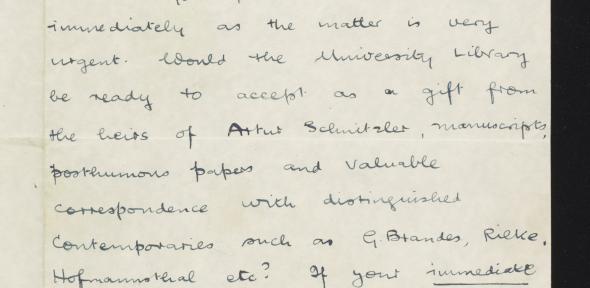 immediately as the matter is very
urgent. Would the University Library
be ready to accept as a gift from
the heirs of Artur Schnitzler, manuscripts,
posthumous papers and valuable
correspondence with distinguished
Contemporaries such as G. Brandes, Rilke,
Hofmannsthal etc? If your immediate